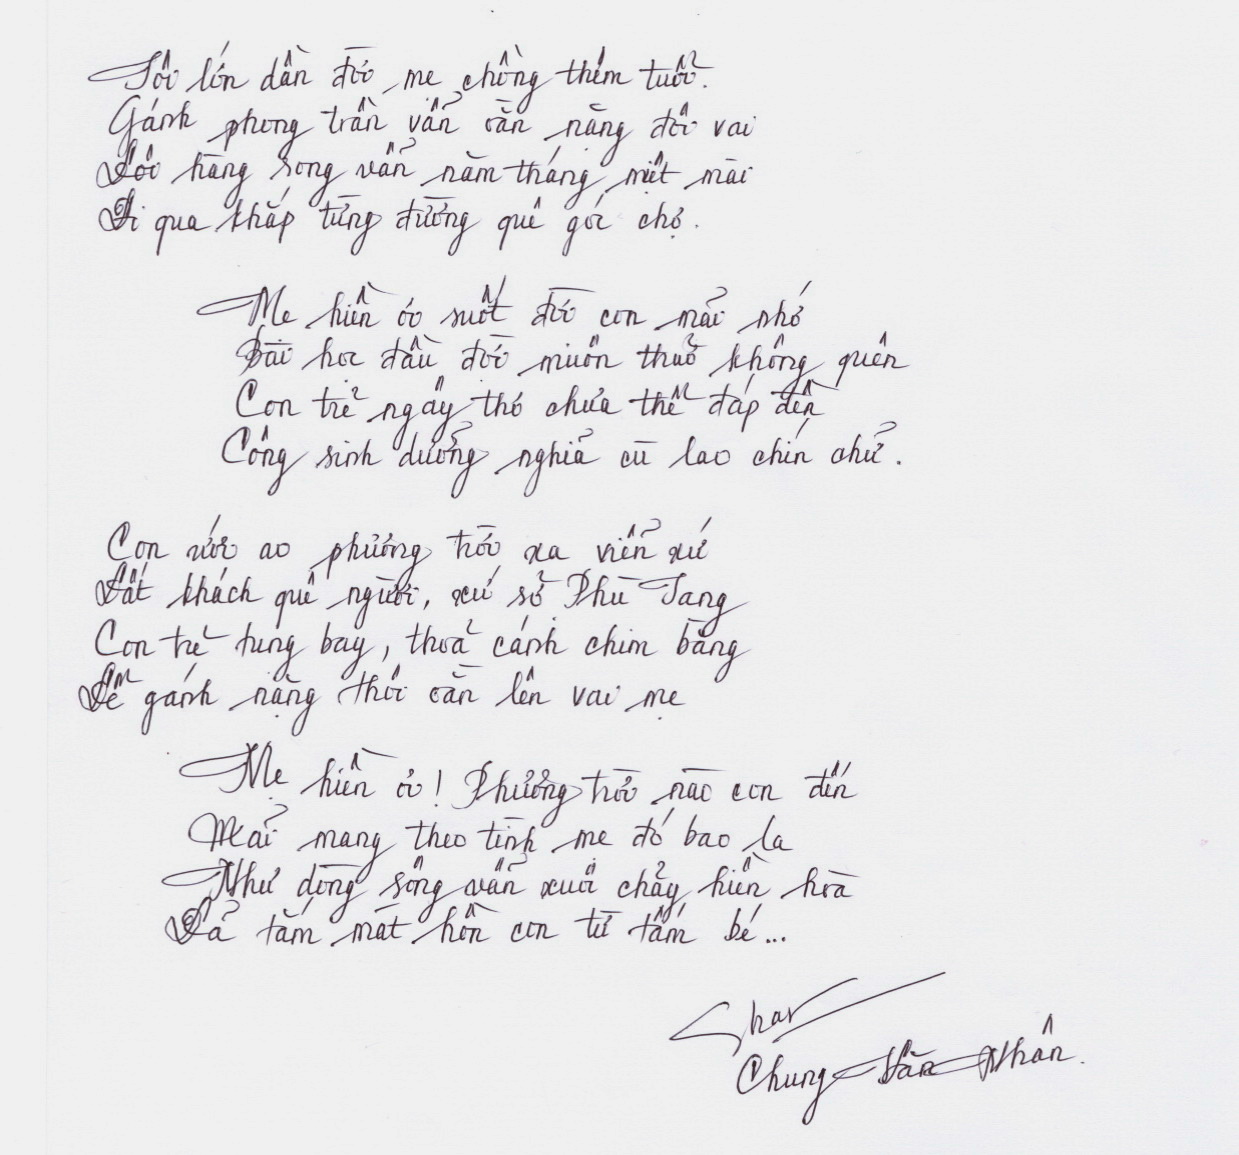 Tôi lớn dần đời mẹ chồng thêm tuổi.
Gánh phong trần vẫn oằn nặng đôi vai
Đôi hàng song vẫn năm tháng miệt mài
Đi qua khắp từng đường quê góc chợ.
Mẹ hiền ơi suốt đời con mãi nhớ
Bài học đầu đời muôn thuở không quên
Con trẻ ngây thơ chưa thể đáp đền
Công sinh dưỡng nghĩa cù lao chín chữ.
Con ước ao phương trời xa viễn xứ
Đất khách quê người, xứ sở Phù Tang
Con trẻ tung bay, thoả cánh chim bằng
Để gánh nặng thôi oằn lên vai mẹ
Mẹ hiền ơi! Phương trời nào con đến
Mãi mang theo tình mẹ đó bao la
Như dòng sông vẫn xuôi chảy hiền hòa
Đã tắm mát hồn con từ tấm bé...
Chung Văn Nhân.